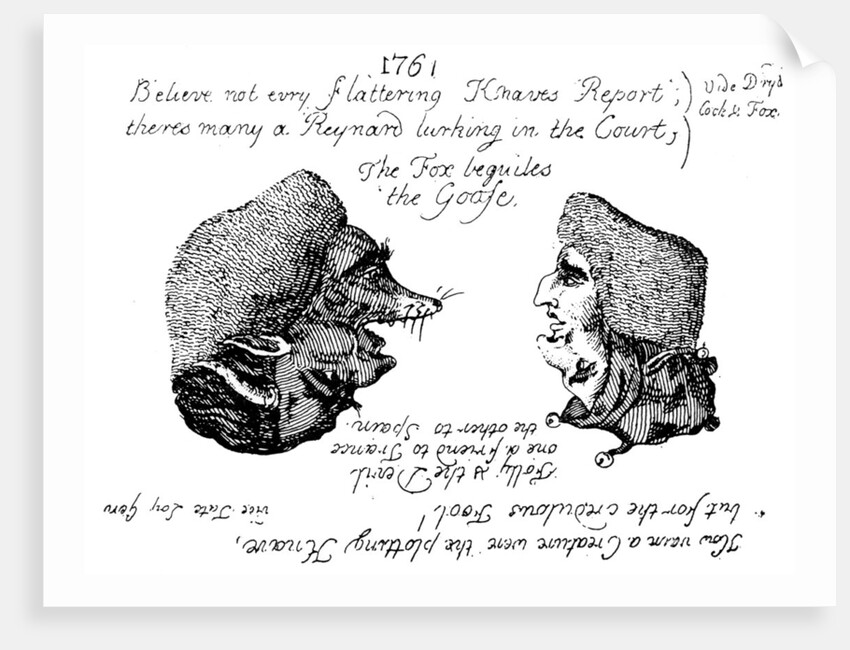 1761
Believe not evry flattering Knaves Report;
theres many a Reynard lurking in the Court;
Vide Dryd
Cock & Fox.
The Fox beguiles
the Goose.
How vain a Creature were the plotting Knave,
but for the credulous Fool!
Folly & the Devil
one a friend to France
the other to Spain.